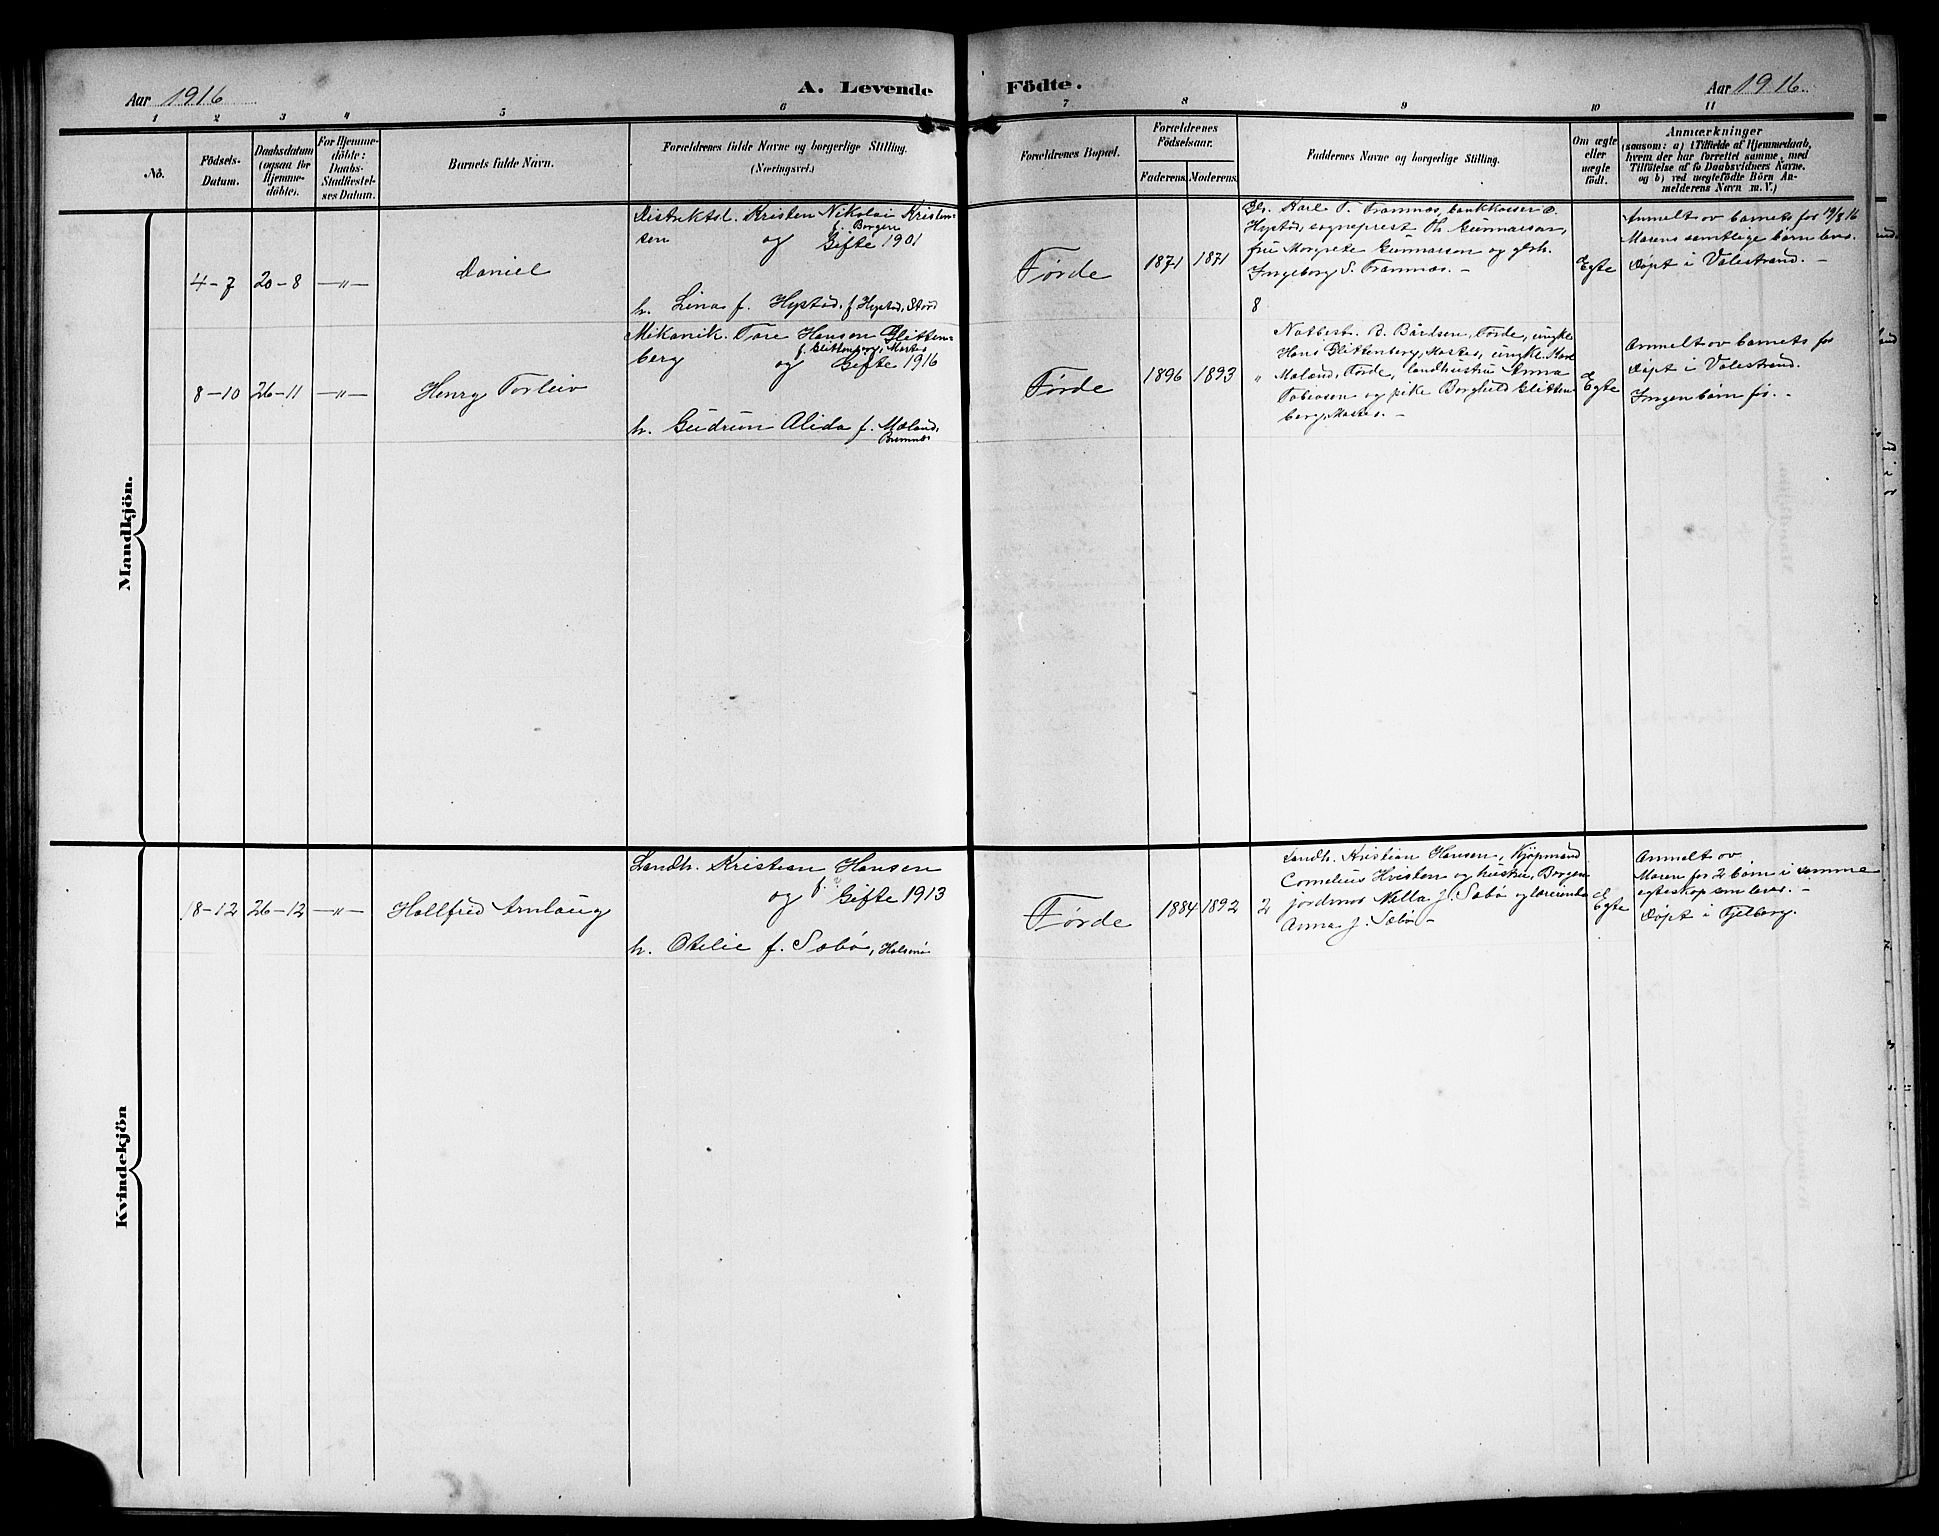 Aar 1916
A. Levende
Födte.
Aar 1916.
1 2 3 4 5 6 7 8 9 10 11
No.
Födsels-
Datum.
Daabsdatum
(ogsaa for
Hjemme-
döbte).
For Hjemme-
döbte:
Daabs-
Stadfæstel-
ses Datum.
Barnets fulde Navn.
Forældrenes fulde Navne og borgerlige Stilling.
(Næringsvei.)
Forældrenes Bopæl.
Forældrenes
Födselsaar.
Faderens. Moderens.
Faddernes Navne og borgerlige Stilling.
Om ægte
eller
uægte
født.
Anmærkninger
(saasom: a) i Tilfælde af Hjemmedaab,
hvem der har forrettet samme, med
Tilföielse af to Daabsvidners Navne.
og b) ved uægtefødte Börn An-
melderens Navn m. V.)
Mandkjön.
4-7 20-8 -"-
Daniel
Distriktsl. Kristen Nikolai Kristen-
sen og f. Borgen Gifte 1901
h. Lina f. Hystad, f Hystad, Stord
Førde
1871 1871
8
Karl T. Tramnæs, bankkasser
Hystad, sogneprest Th. Gunnarson,
fru Margrete Gunnarson og
Ingeborg S. Tramnæs. -
Egte
Anmelt av barnets far 19/8 16
Morens samtlige børn lever.
Døpt i Valestrand. -
8-10 26-11 -"-
Henry Torleiv
Mekanik. Tore Hansen Glitten-
berg og f. Glittenberg, Moster Gifte 1916
h. Gudrun Alida f. Mæland,
Bremnes
Førde
1896 1893
"
Notbest. B. Bårdsen, Førde, ungk.
Hans Glittenberg, Moster, ungk. Karl
Mæland, Førde, landhustru Anna
Tobiasen og pike Borghild Glitten-
berg, Moster. -
Egte
Anmelt av barnets far
Døpt i Valestrand.
Ingen børn før. -
Kvindekjön
18-12 26-12 -"-
Hallfrid Arnlaug
Landh. Kristian Hansen
og f. Gifte 1913
h. Otelie f. Sæbø, Halsnø
Førde
1884 1892
2
Landh. Kristian Hansen, Kjøpmand
Cornelius og hustru, Borgen
jordmor Nella J. Sæbø og
Anna J. Sæbø -
Egte
Anmelt av
Moren før 2 børn i samme
egteskap som lever. -
Døpt i Fjelberg.